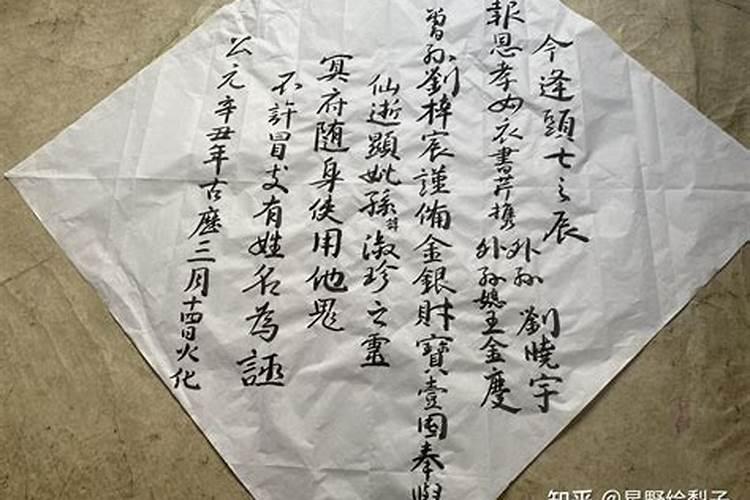 今逢頭七之辰
報恩孝女衣書芹携
外孙 劉曉宇
外孙媳王金
曾孙劉梓宸謹俻金銀財寶壹囤奉與
仙逝顯妣孫諱淑珍之靈
冥府随身使用他鬼
不許冒支有姓名為
公元辛丑年古歷三月十四日火化
知乎 @星野绘梨子